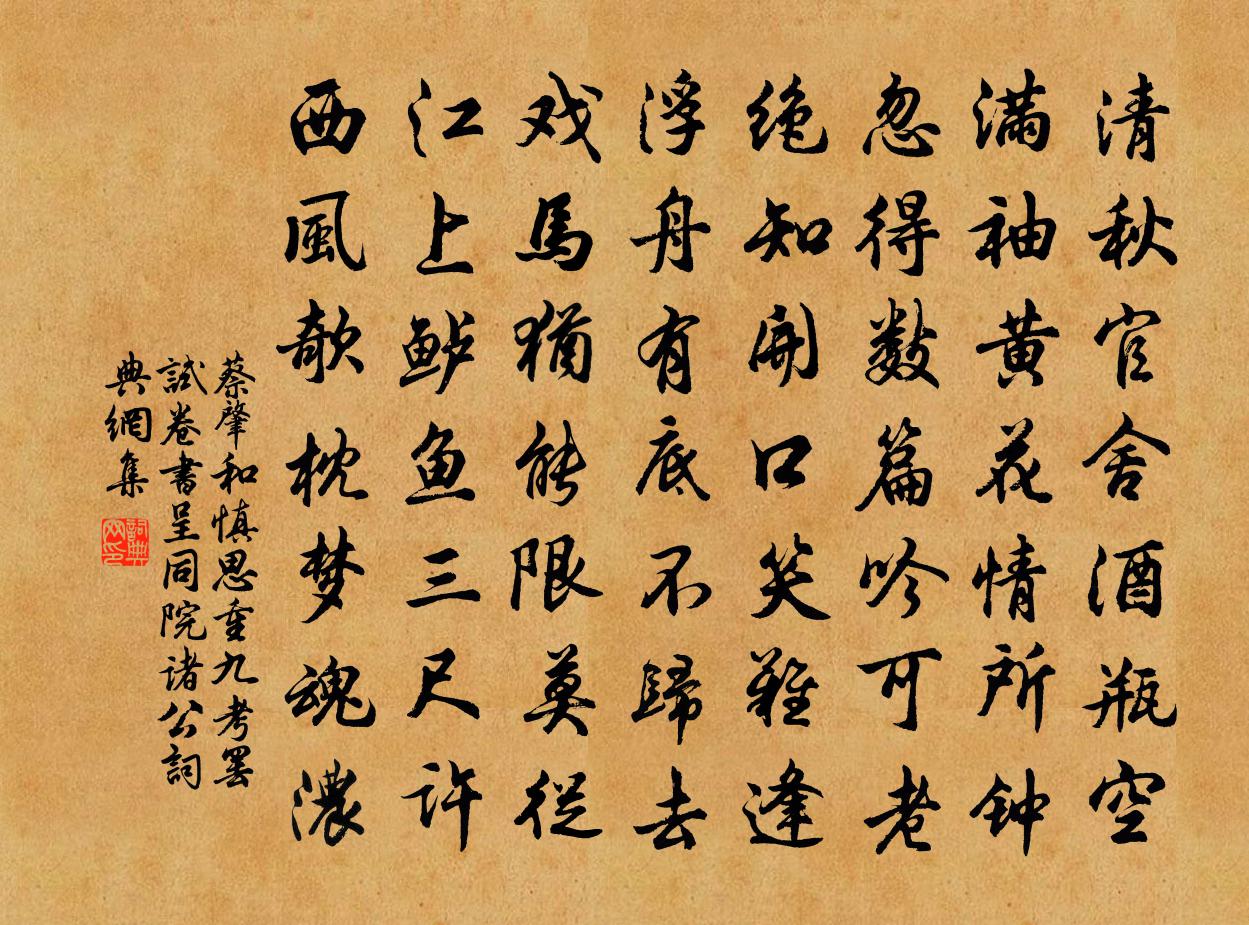 清秋官舍酒瓶空
满袖黄花情所钟
忽得数篇吟可老
绝知開口笑難逢
浮舟有底不歸去
戏馬猶能限莫從
江上鲈鱼三尺许
西風欹枕梦魂濃
蔡肇和慎思重九考罢
試卷書呈同院诸公詞
典網集
詞典
网印